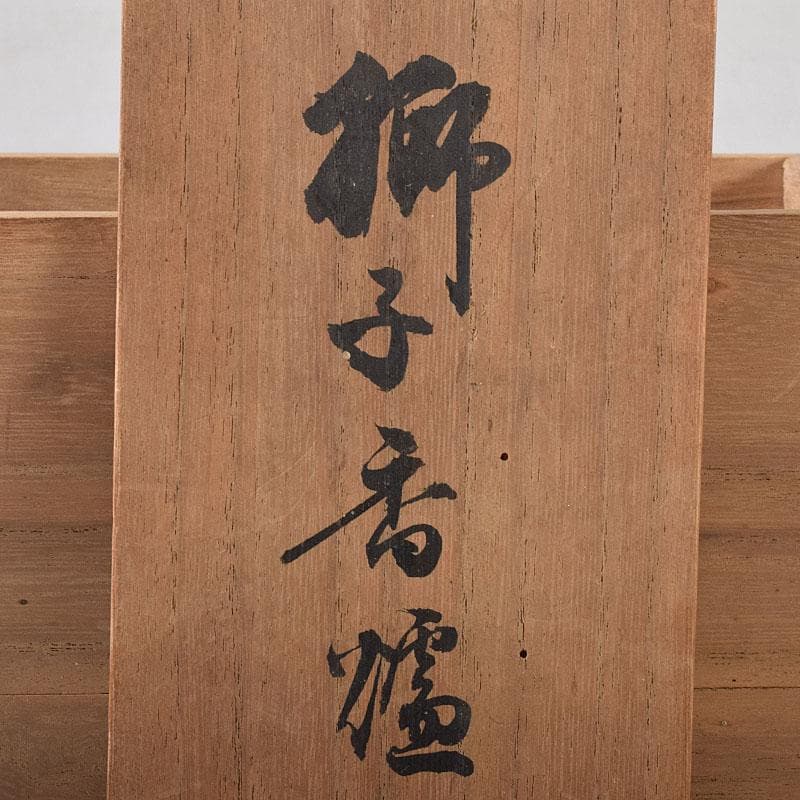 獅子香爐